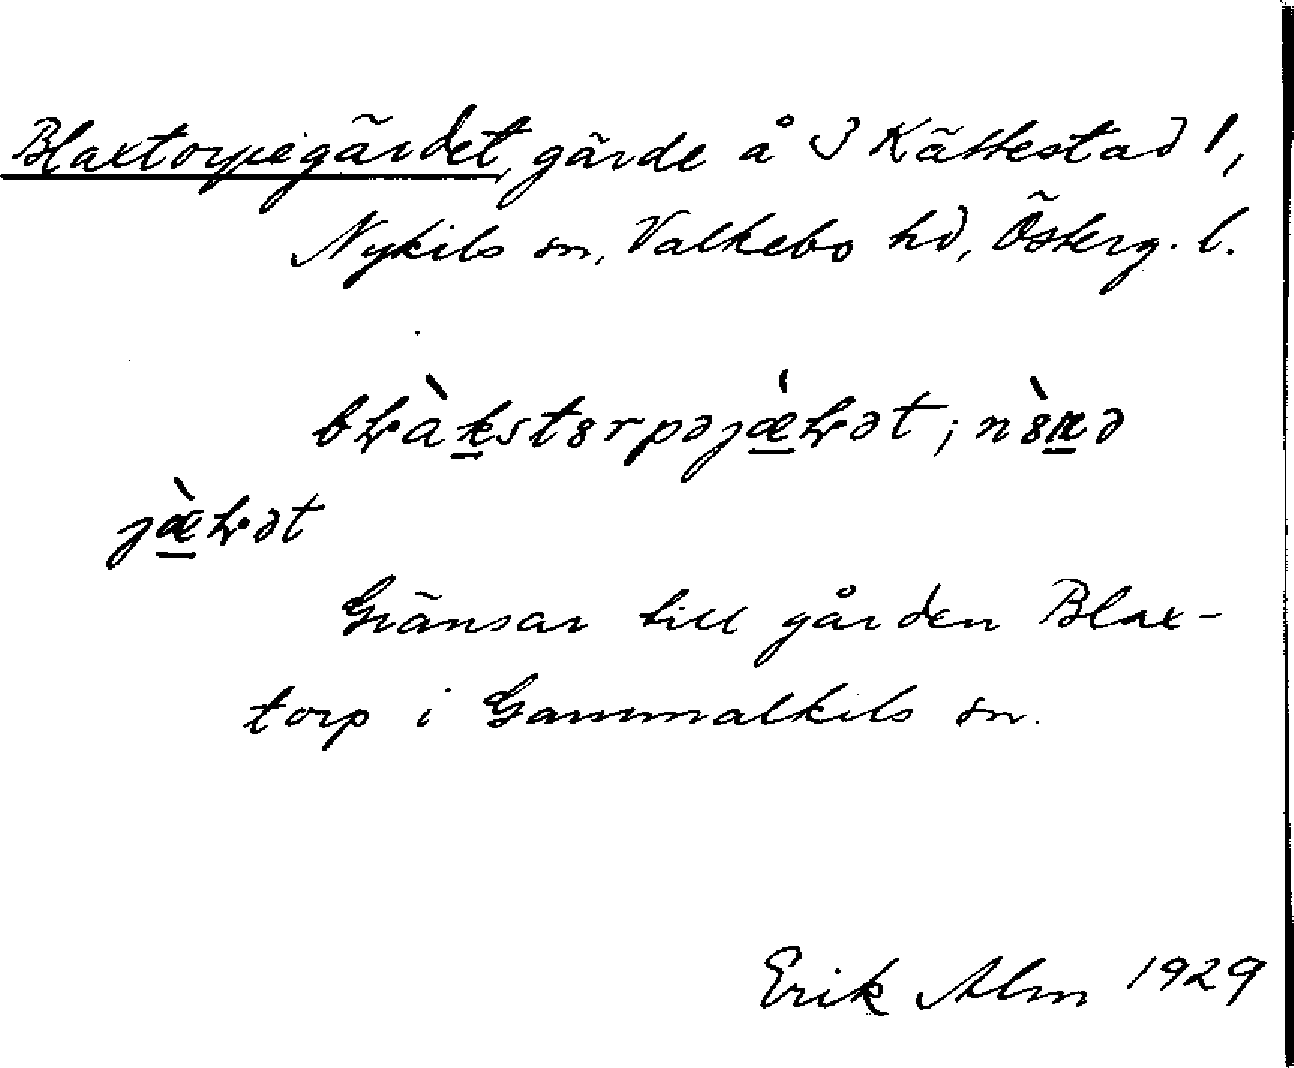 Blaxtorpegärdet, gärde å I Kättestad 1,
Nykils sn, Valkebo hd, Österg. l.
bɽàk̲st8rpəjæ̲̀ɽət; nò8n̲ə
jæ̲̀ɽət
Gränsar till gården Blax-
torp i Gammalkils sn.
Erik Alm 1929